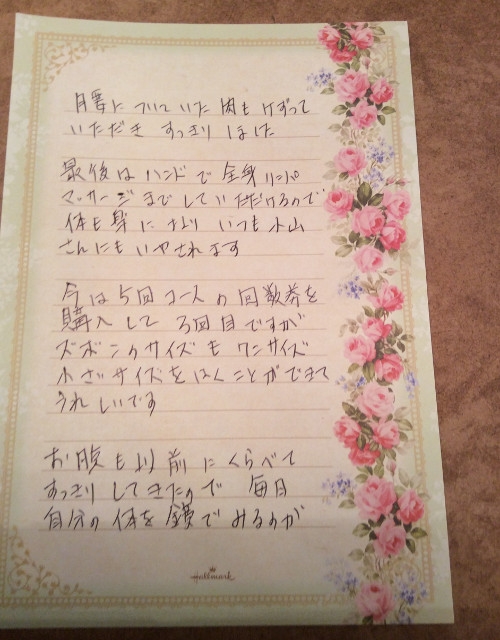 腰についていた肉もけずって
いただき すっきりしました
最後はハンドで全身リンパ
マッサージまでしていただけるので
体も楽になり いつも小山
さんにもいやされます
今は5回コースの回数券を
購入して 3回目ですが
ズボンのサイズもワンサイズ
小さいサイズをはくことができて
うれしいです
お腹も以前にくらべて
すっきりしてきたので 毎日
自分の体を鏡でみるのが
Hallmark